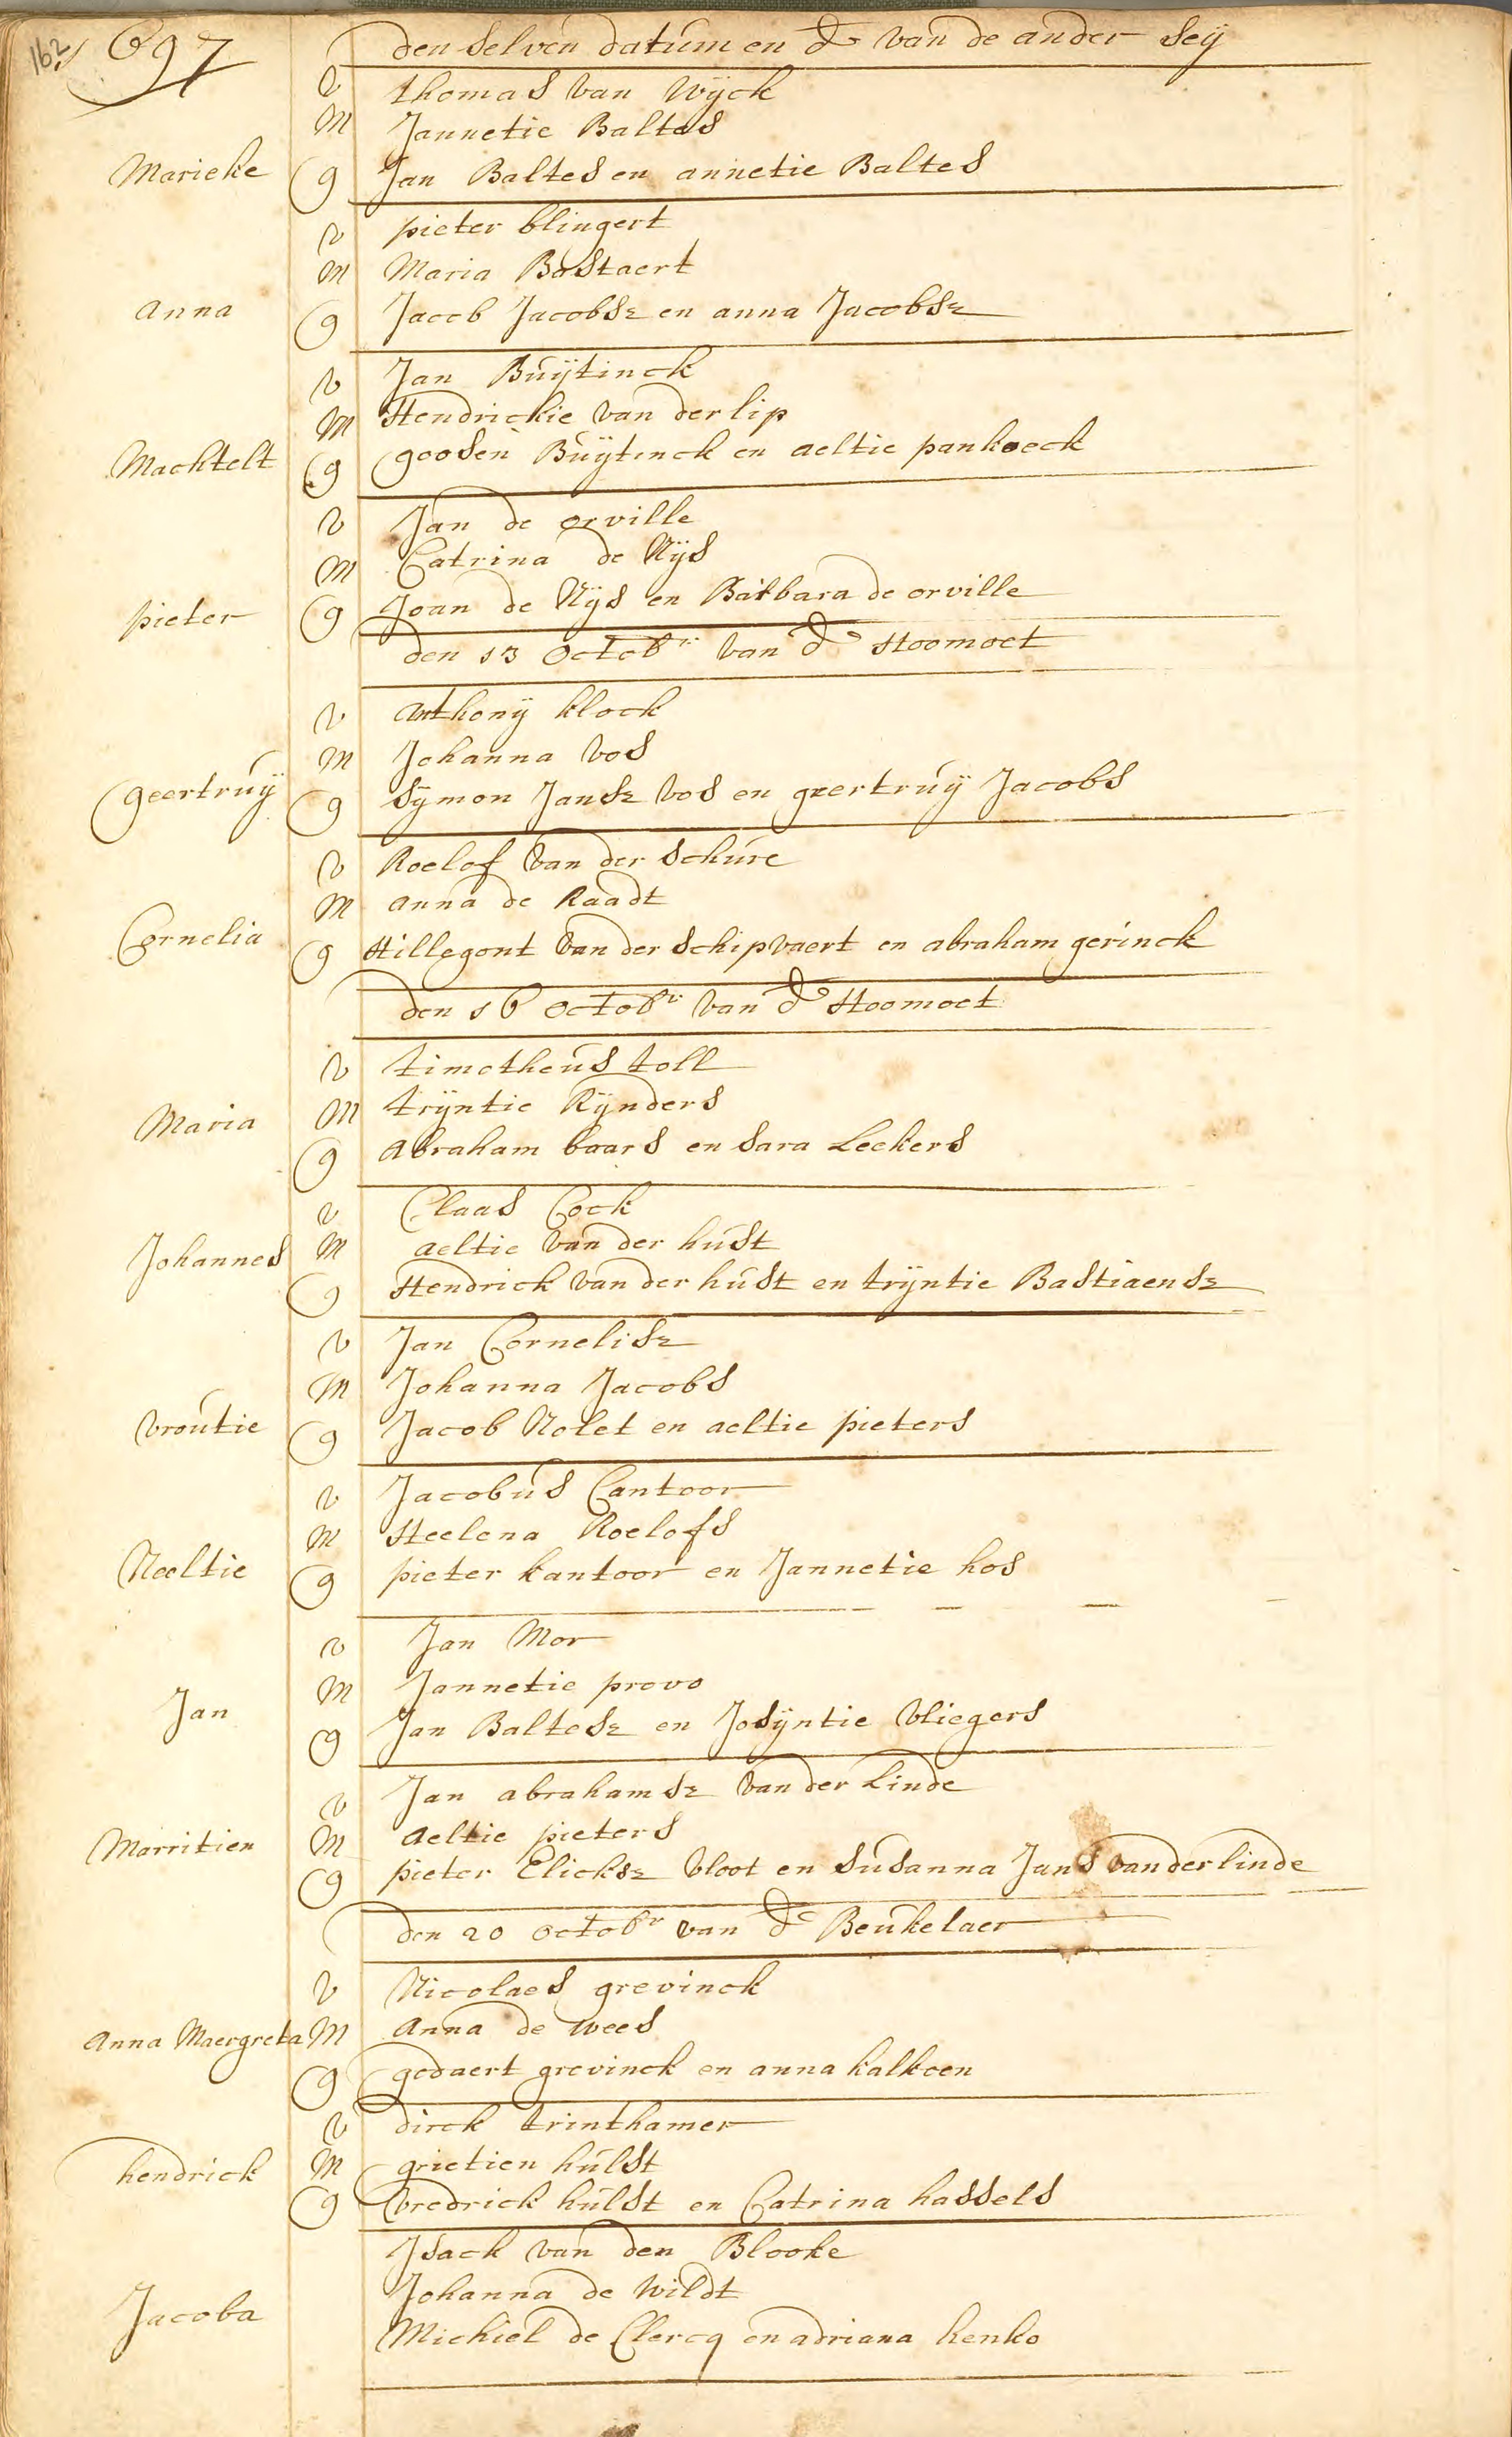 162
697
den selven datum en d van de ander sey
v thomas van wyck
M Jannetie Baltes
Marieke g Jan Baltes en annetie Baltes
v pieter blingert
M Maria Bastaert
anna g Jacob Jacobsz en anna Jacobsz
v Jan Buÿtinck
M Hendrickie van der lip
Machtelt g goosen Buÿtinck en aeltie pankoeck
v Jan de orville
M Catrina de Nÿs
pieter g Joan de Nÿs en Barbara de orville
den 13 Octobr van d Hoomoet
v anthonÿ klock
M Johanna vos
geertruÿ g Sÿmon Jansz vos en geertruÿ Jacobs
v Roelof van der schure
M anna de Raadt
Cornelia g Hillegont van der schipvaert en abraham gerinck
den 16 octobr van d Hoomoet
v timotheus toll
Maria M trÿntie Rÿnders
g Abraham baars en sara Leekers
v Claas Cock
Johannes M aeltie van der hust
g Hendrick van der hust en trÿntie Bastiaensz
v Jan Cornelisz
M Johanna Jacobs
vroutie g Jacob Nolet en aeltie pieters
v Jacobus Cantoor
M Heelena Roelofs
Neeltie g pieter kantoor en Jannetie hos
v Jan Mor
M Jannetie provo
Jan g Jan Baltesz en Josÿntie vliegers
v Jan abrahamsz van der Linde
Marritien M aeltie pieters
g pieter Elicksz vloot en susanna Jans van der linde
den 20 octobr van d Beukelaer
v Nicolaes grevinck
Anna Maergreta M Anna de wees
g godaert grevinck en anna kalkoen
v dirck trinthamer
hendrick M grietien hulst
g vredrick hulst en Catrina hassels
Jsack van den Blooke
Johanna de wildt
Jacoba Michiel de Clercq en adriana henko